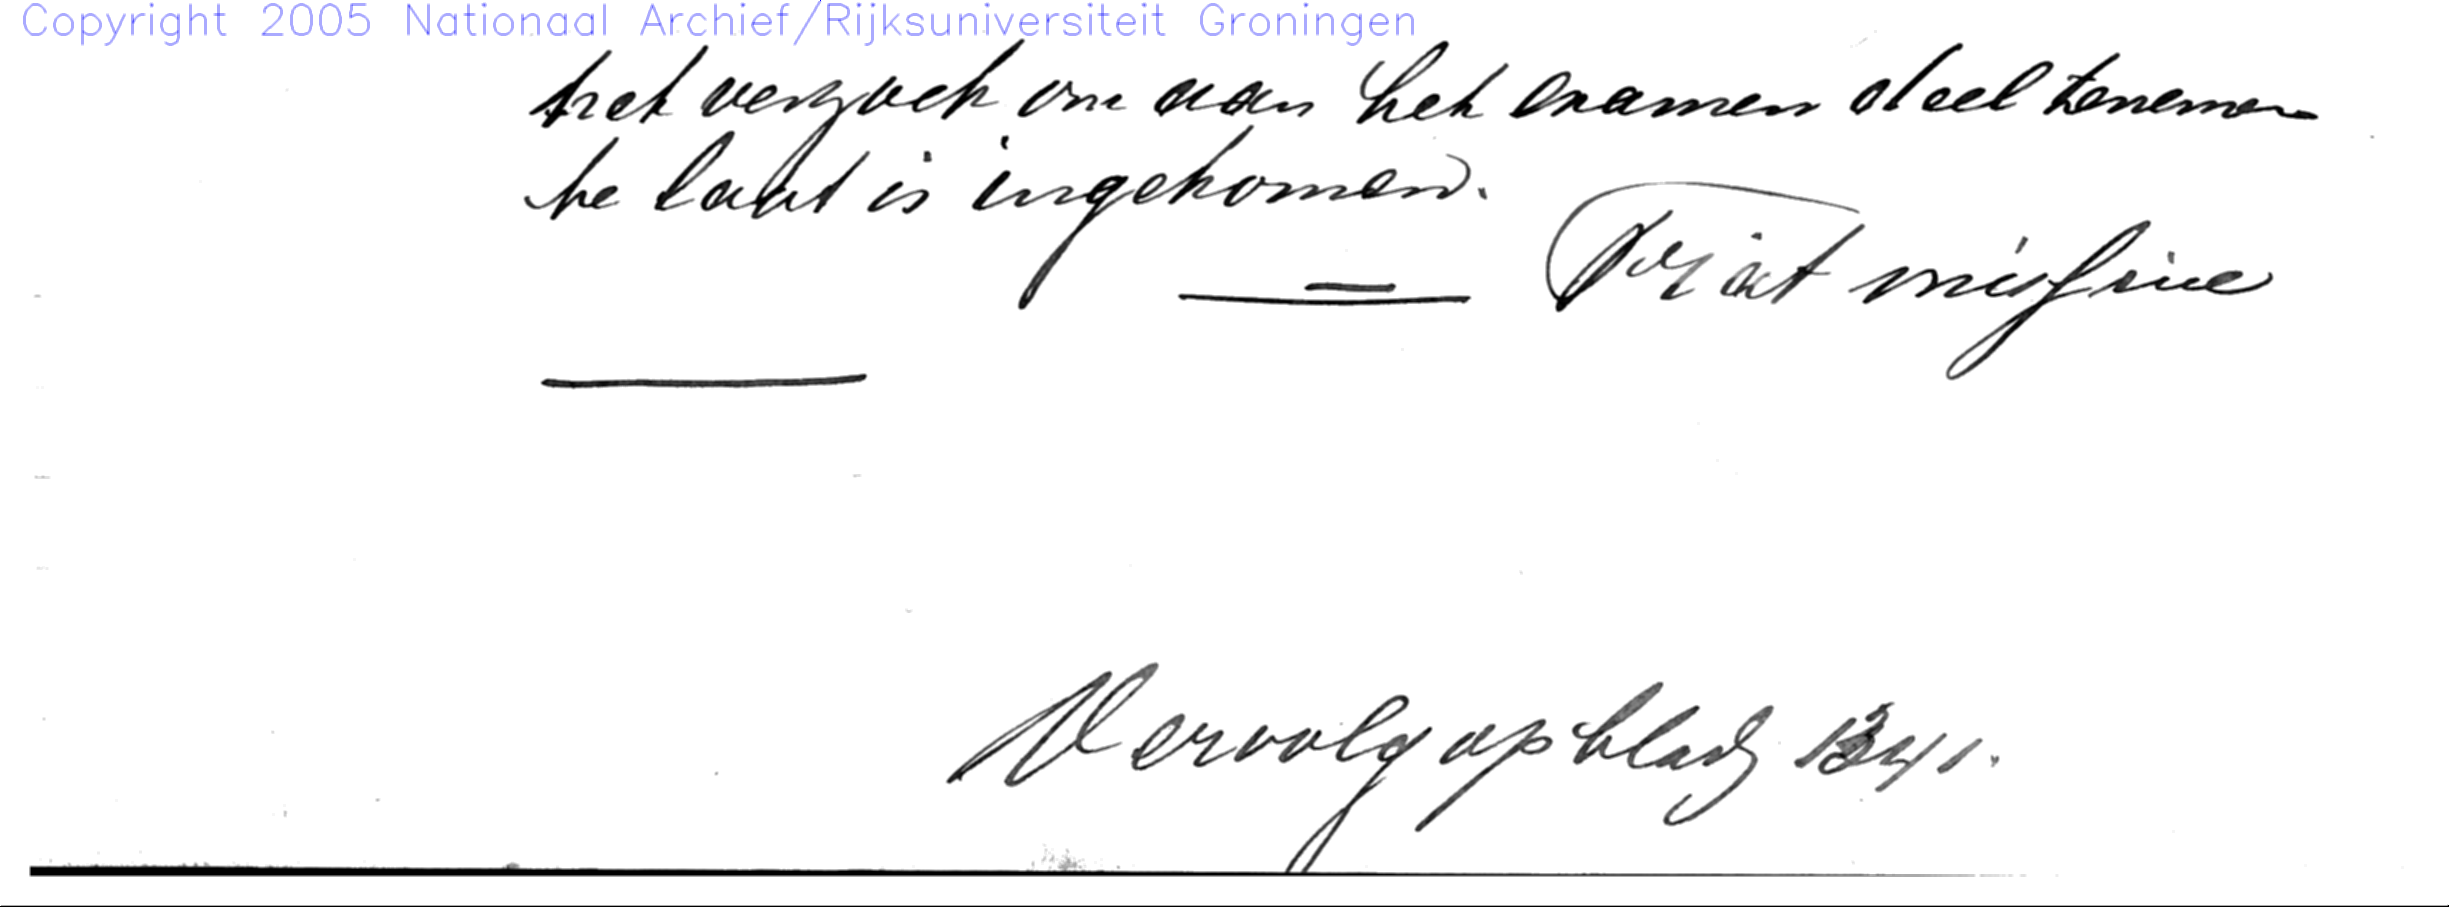 Copyright 2005 Nationaal Archief/Rijksuniversiteit Groningen
het verzoek om aan het examen deel tenemen
te laat is ingekomen.
Fiat missive
Vervolg op bladz 1341.